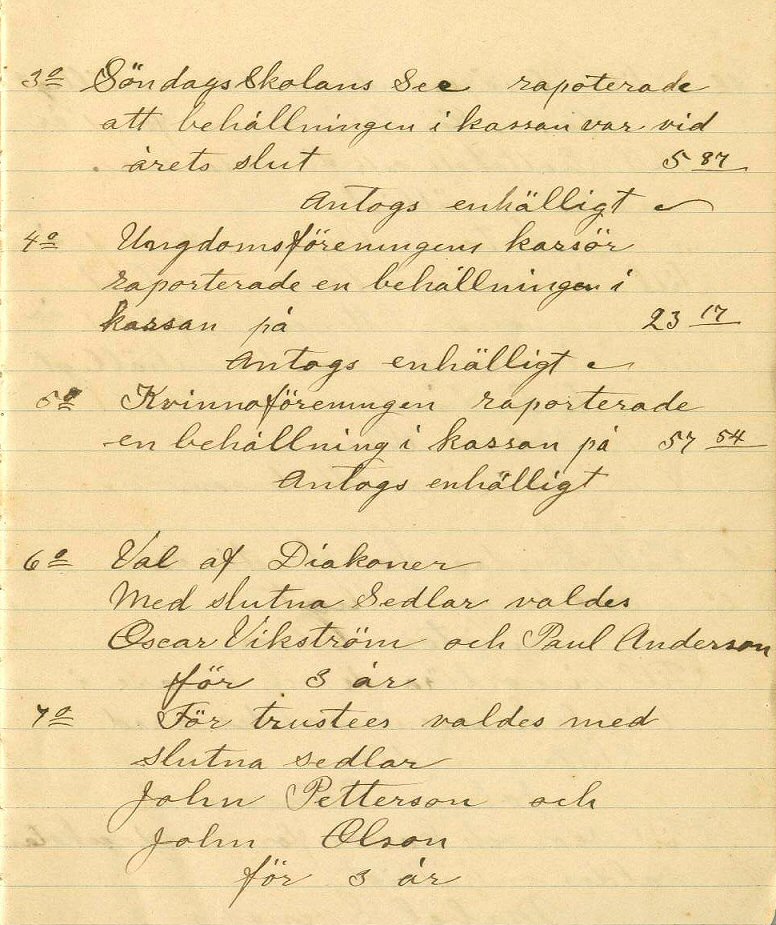 3o SöndagsSkolans See rapoterade
att behållningen i kassan var vid
årets slut 5 87
Antogs enhälligt
4o Ungdomsföreningens kassör
raporterade en behållningen i
kassan på 23 17
Antogs enhälligt
5o Kvinnoföreningen raporterade
en behållning i kassan på 57 54
Antogs enhälligt
6o Val af Diakoner
Med slutna Sedlar valdes
Oscar Vikström och Paul Anderson
för 3 år
7o För trustees valdes med
slutna sedlar
John Petterson och
John Olson
för 3 år